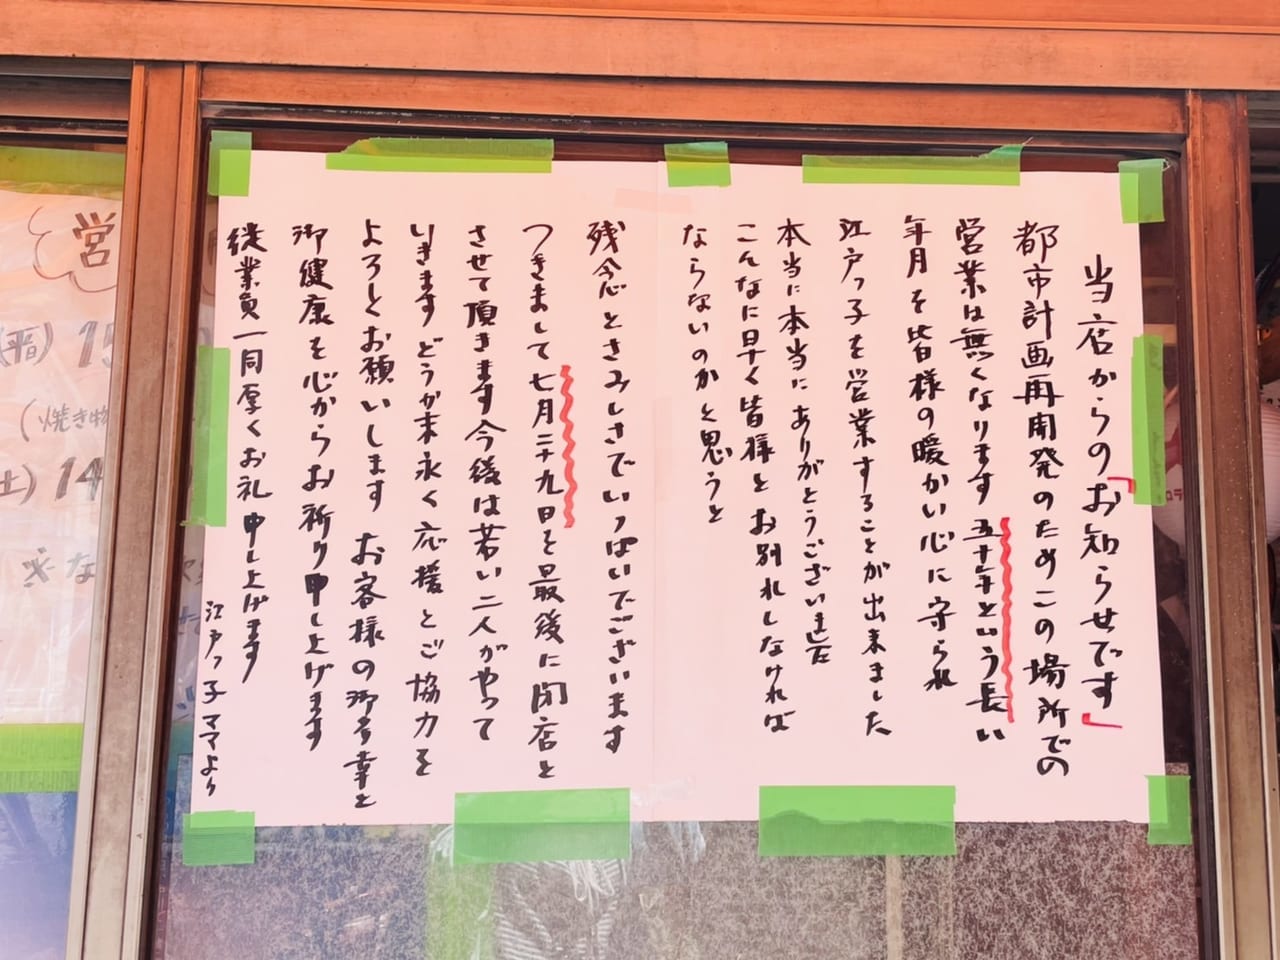 当店からの「お知らせです」
都市計画再開発のためこの場所での
営業は無くなります 五十年という長い
年月を皆様の暖かい心に守られ
江戸っ子を営業することが出来ました
本当に本当にありがとうございました
こんなに早く皆様とお別れしなければ
ならないのかと思うと
残念とさみしさでいっぱいでございます
つきまして七月二十九日を最後に閉店と
させて頂きます今後は若い二人がやって
いきますどうか末永く応援とご協力を
よろしくお願いします お客様の御多幸と
御健康を心からお祈り申し上げます
従業員一同厚くお礼申し上げます
江戸っ子ママより
営
(平日) 15
(焼き物
土) 14